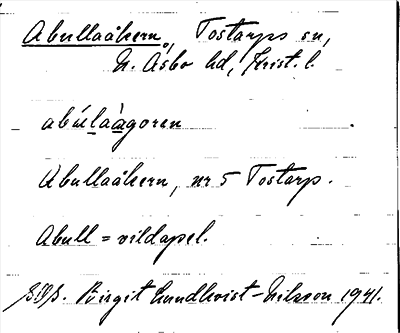 Abullaåkern, Tostarps sn,
N. Åsbo hd, Krist. l.
abúlaàgoren
Abullaåkern, nr 5 Tostarp.
Abull = vildapel.
Birgit Lundkvist-Nilsson 1941.